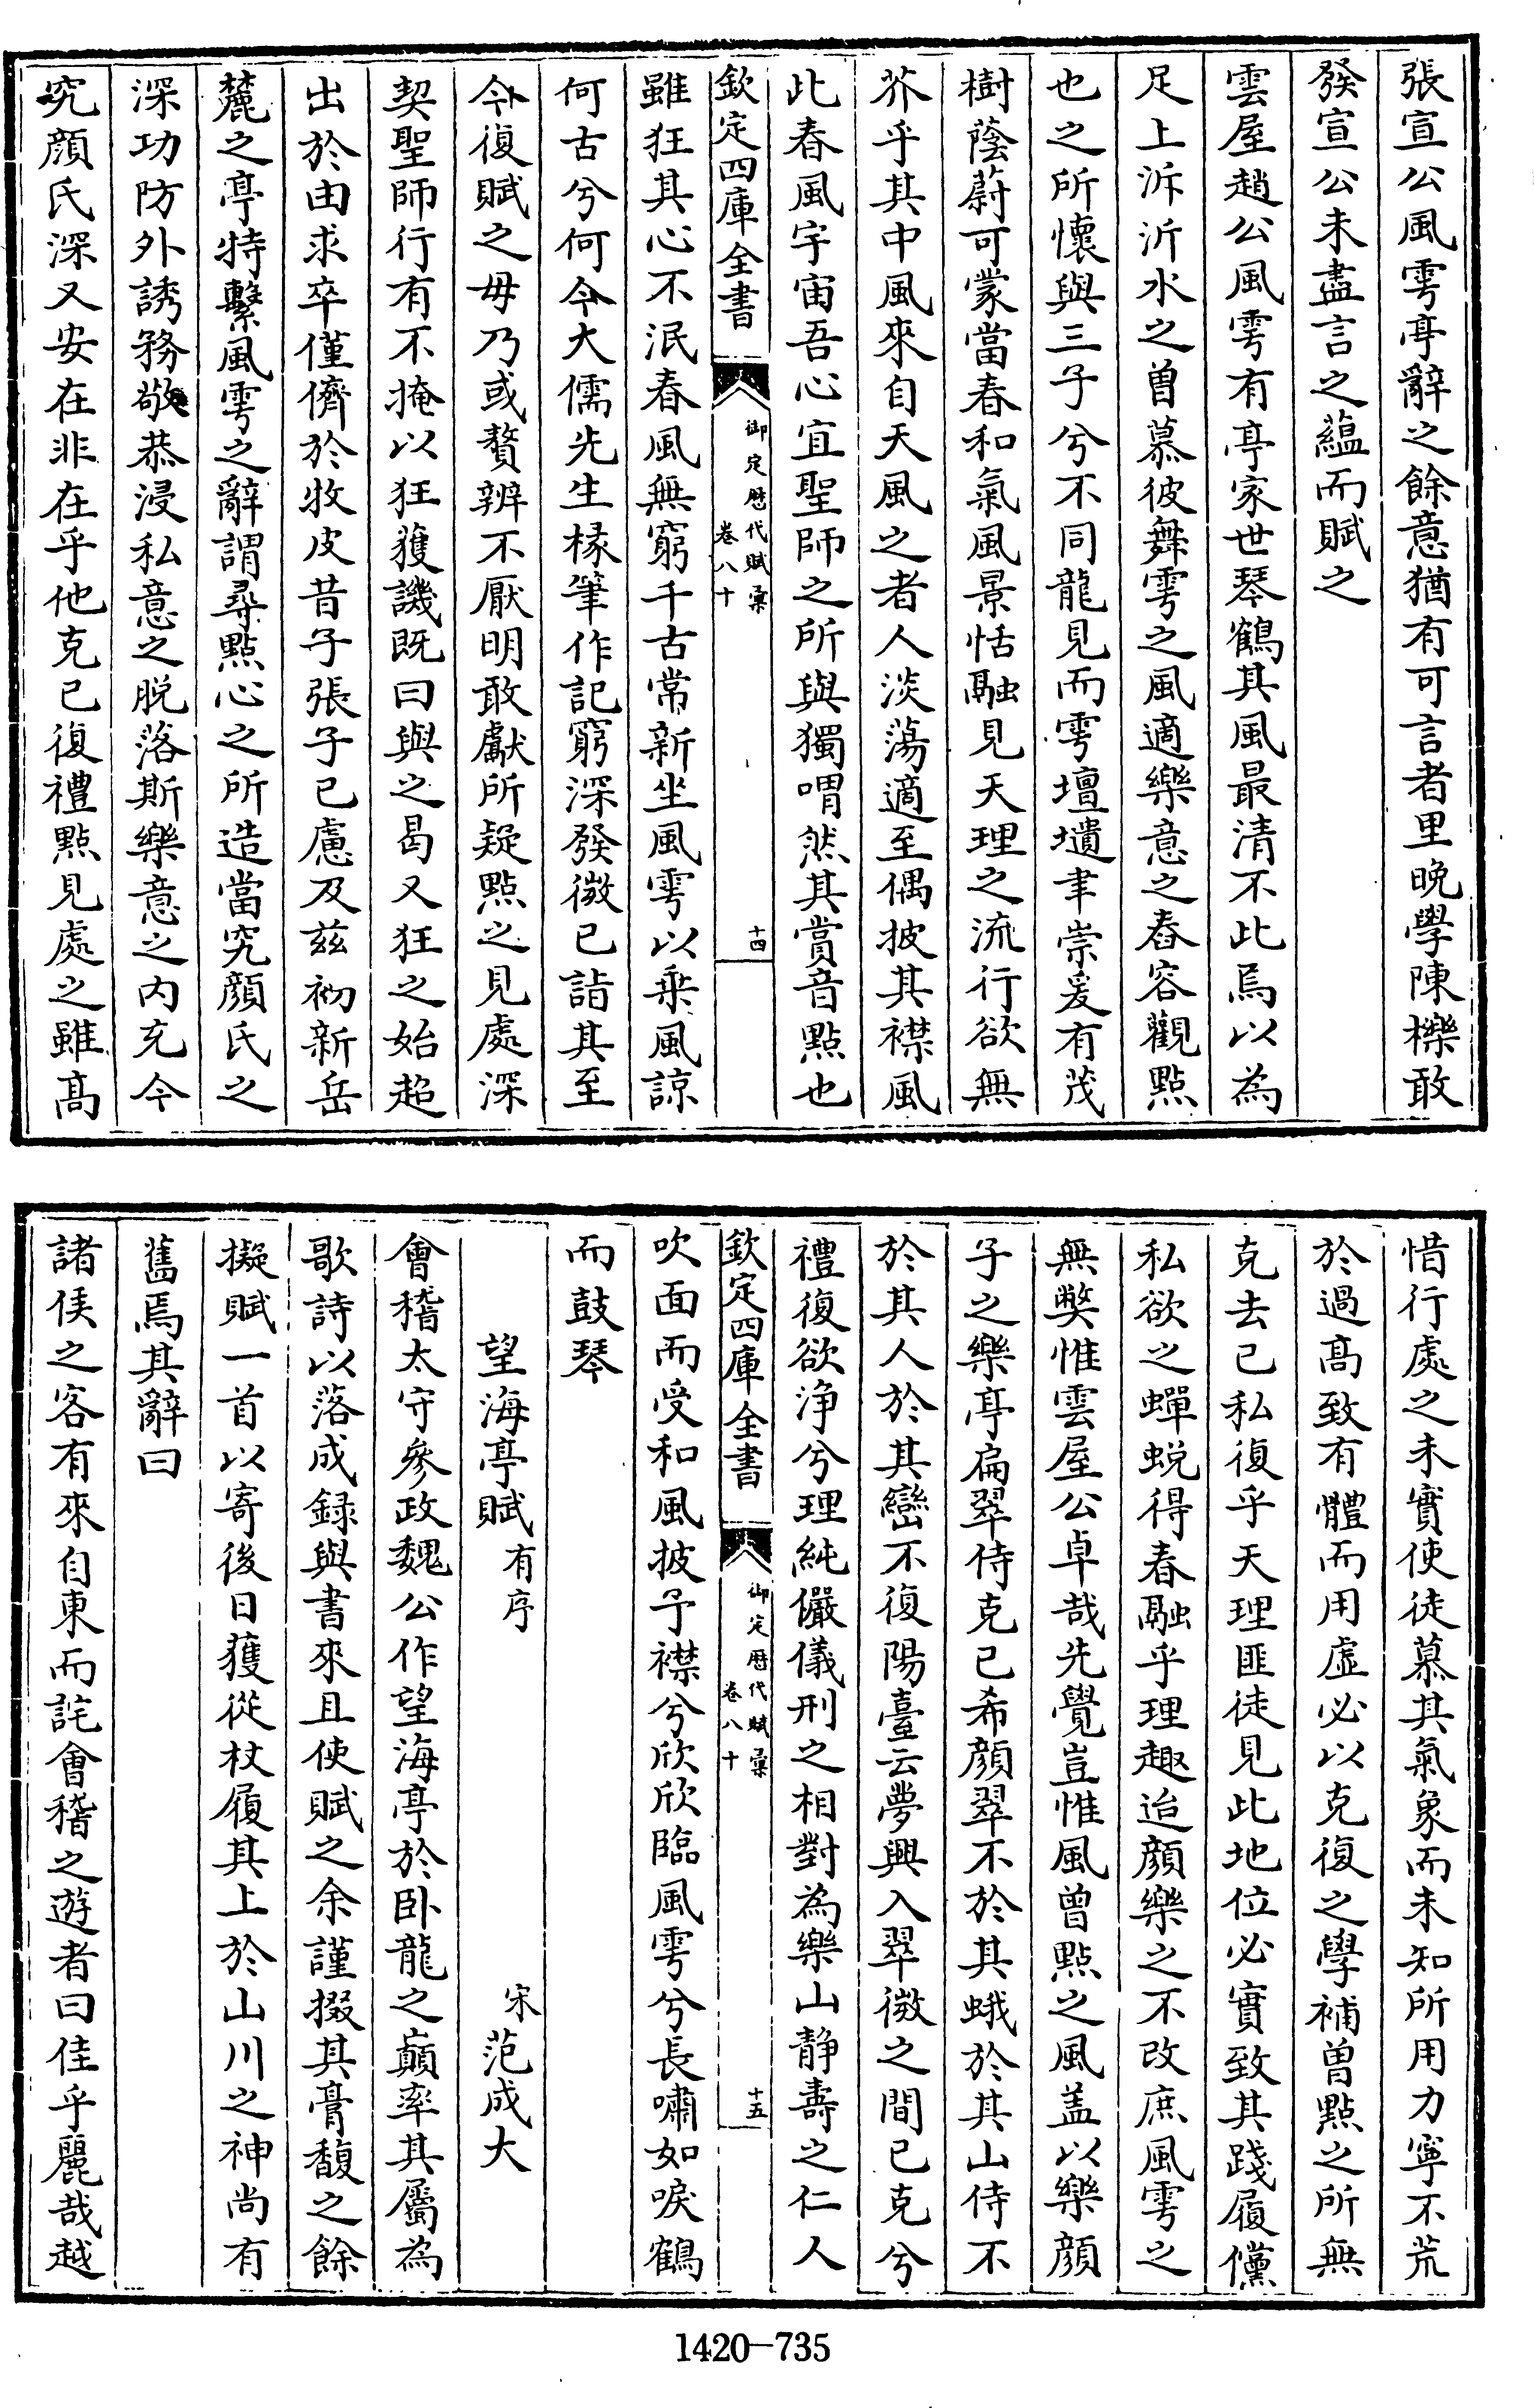 張宣公風雩亭辭之餘意猶有可言者里晩學陳櫟敢
發宣公未盡言之蘊而賦之
雲屋趙公風雩有亭家世琴鶴其風最清不此焉以為
足上泝沂水之曾慕彼舞雩之風適樂意之舂容觀點
也之所懷與三子兮不同龍見而雩壇壝聿崇爰有茂
樹蔭蔚可蒙當春和氣風景恬融見天理之流行欲無
芥乎其中風來自天風之者人淡蕩適至偶披其襟風
此春風宇宙吾心宜聖師之所與獨喟然其賞音點也
欽定四庫全書
御定歴代賦彙
卷八十
十四
雖狂其心不泯春風無窮千古常新坐風雩以乗風諒
何古兮何今大儒先生椽筆作記窮深發微已詣其至
今復賦之毋乃或贅辨不厭明敢獻所疑點之見處深
契聖師行有不掩以狂獲譏既曰與之曷又狂之始超
出於由求卒僅儕於牧皮昔子張子已慮及茲初新岳
麓之亭特繫風雩之辭謂尋點心之所造當究顔氏之
深功防外誘務敬恭浸私意之脱落斯樂意之内充今
究顔氏深又安在非在乎他克已復禮點見處之雖髙
惜行處之未實使徒慕其氣象而未知所用力寧不荒
於過髙致有體而用虛必以克復之學補曽點之所無
克去已私復乎天理匪徒見此地位必實致其踐履儻
私欲之蟬蛻得春融乎理趣迨顔樂之不改庶風雩之
無弊惟雲屋公卓哉先覺豈惟風曾點之風盖以樂顔
子之樂亭扁翠侍克已希顔翠不於其蛾於其山侍不
於其人於其巒不復陽臺云夢興入翠微之間已克兮
禮復欲浄兮理純儼儀刑之相對為樂山静壽之仁人
欽定四庫全書
御定歴代賦彙
卷八十
十五
吹面而受和風披予襟兮欣欣臨風雩兮長嘯如唳鶴
而鼓琴
望海亭賦有序 宋范成大
會稽太守參政魏公作望海亭於卧龍之巔率其屬為
歌詩以落成録與書來且使賦之余謹掇其膏馥之餘
擬賦一首以寄後日獲從杖履其上於山川之神尚有
舊焉其辭曰
諸侯之客有來自東而詫會稽之遊者曰佳乎麗哉越
1420-735